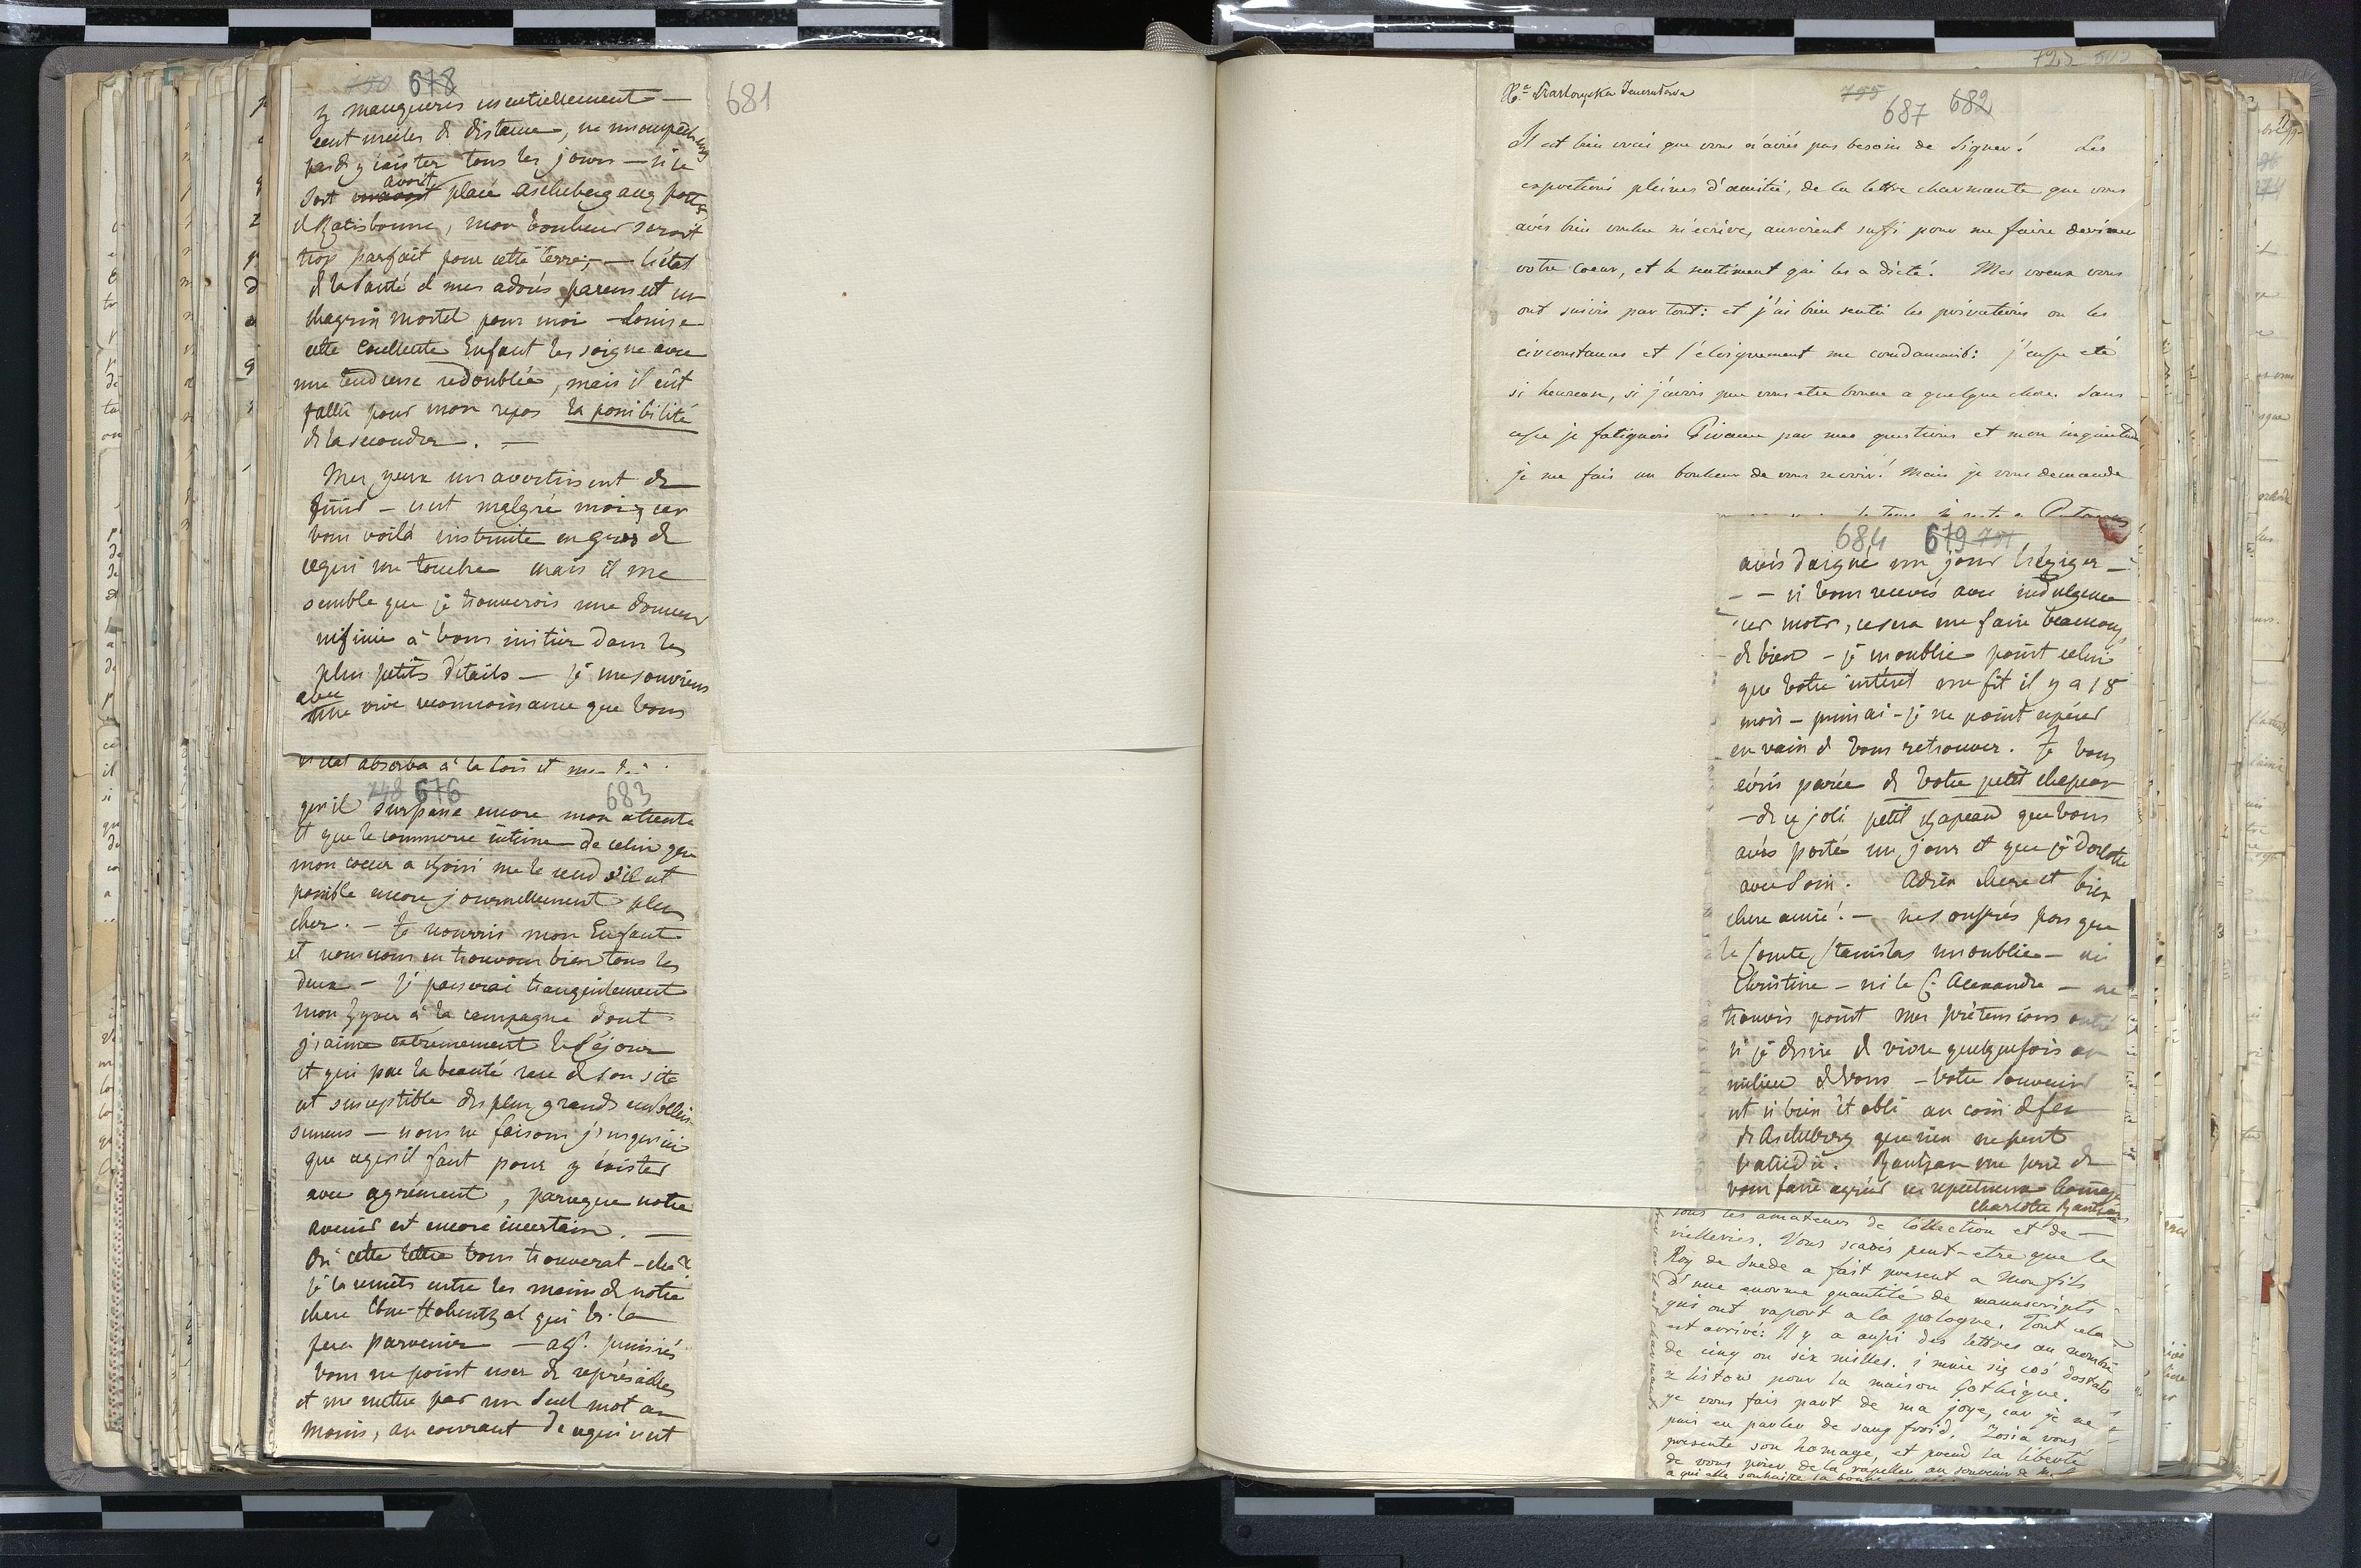 750 678
y manqueres essentiellement —
cent milles de distance, ne m'empêchent
pas d'y exister tous les jours — si le
avoit
sort placé Ascheberg aux portes
de Ratisbonne, mon bonheur seroit
trop parfait pour cette terre; — l'état
de la santé de mes adorés parens est un
chagrin mortel pour moi — Louise
cette excellente Enfant les soigne avec
une tendresse redoublée, mais il eût
fallu pour mon repos la possibilité
de la seconder. —
Mes yeux m'avertissent de
finir — c'est malgré moi, car
vous voilà instruite en gros de
ce qui me touche mais il me
semble que je trouverois une douceur
infinie à vous initier dans les
plus petits détails — je me souviens
avec
une vive reconnoissance que vous
absorba à la fois et
748 676 683
qu'il surpasse encore mon attente
et que le commerce intime de celui que
mon coeur a choisi me le rend s'il est
possible encore journellement plus
cher. — Je nourris mon Enfant
et nous nous en trouvons bien tous les
deux — je passerai tranquilement
mon hyver à la campagne dont
j'aime extrêmement le séjour
et qui par la beauté rare de son site
est susceptible des plus grands embellis
semens — nous ne faisons jusqu'ici
que ce qu'il faut pour y exister
avec agrément, parceque notre
avenir est encore incertain. —
Où cette lettre vous trouverat-elle?
je la remets entre les mains de notre
chere
fera parvenir — ah! puissiés
vous ne point user de représailles
et me mettre par un seul mot au
moins, au courant de ce qui vient
681
725
755 687 682
Il est bien vrai que vous n'aviés pas besoin de Signer! Les
expretions pleines d'amitié, de la lettre charmante que vous
avés bien voulue m'écrire, auroient suffi pour me faire deviner
votre Coeur, et le sentiment qui les a dicté. Mes voeux vous
ont suivis par tout: et j'ai bien sentie les privations ou les
circonstances et l'eloignement me condamnoit: j'eusse eté
si heureuse, si j'avois pue vous etre bonne a quelque chose. Sans
cesse je fatiguois par mes questions et mon inquietude
je me fais un bonheur de vous revoir! Mais je vous demande
684 679 751
avés daigné un jour l'exiger —
— si vous recevés avec indulgence
ces mots, ce sera me faire beaucoup
de bien — je n'oublie point celui
que votre intéret me fit il y a 18
mois — puissai-je ne point espérer
en vain de vous retrouver. Je vous
écris parée de votre petit chapeau
— de ce joli petit chapeau que vous
avés porté un jour et que je dorlotte
avec soin. Adieu chere et bien
chere amie! — ne souffrés pas que
le Comte Stanislas m'oublie — ni
Christine — ni le C. Alexandre — ne
trouvés point mes prétensions
si je desire de vivre quelquefois au
milieu de vous — votre souvenir
est si bien établi au coin de feu
de Ascheberg que rien ne peut
l'attiédir. Rantzau me prie de
vous faire agréer ses respectueux homages
Charlotte Rantzau
tous les amateurs de Collection et de
vielleries. Vous scavés peut-etre que le
Roy de Suede a fait present a Mon fils
d'une enorme quantité de manuscripts
qui ont raport a la pologne. Tout cela
est arrivé: Il y a aussi des lettres au nombre
de cinq ou six milles. i mnie się coś dostało
z listów pour la maison Gothique.
je vous fais part de ma joye, car je ne
puis en parler de sang froid. Zosia vous
presente son homage, et prend la liberté
de vous prier de la rapeller au souvenir de
a qui elle souhaite la bonne